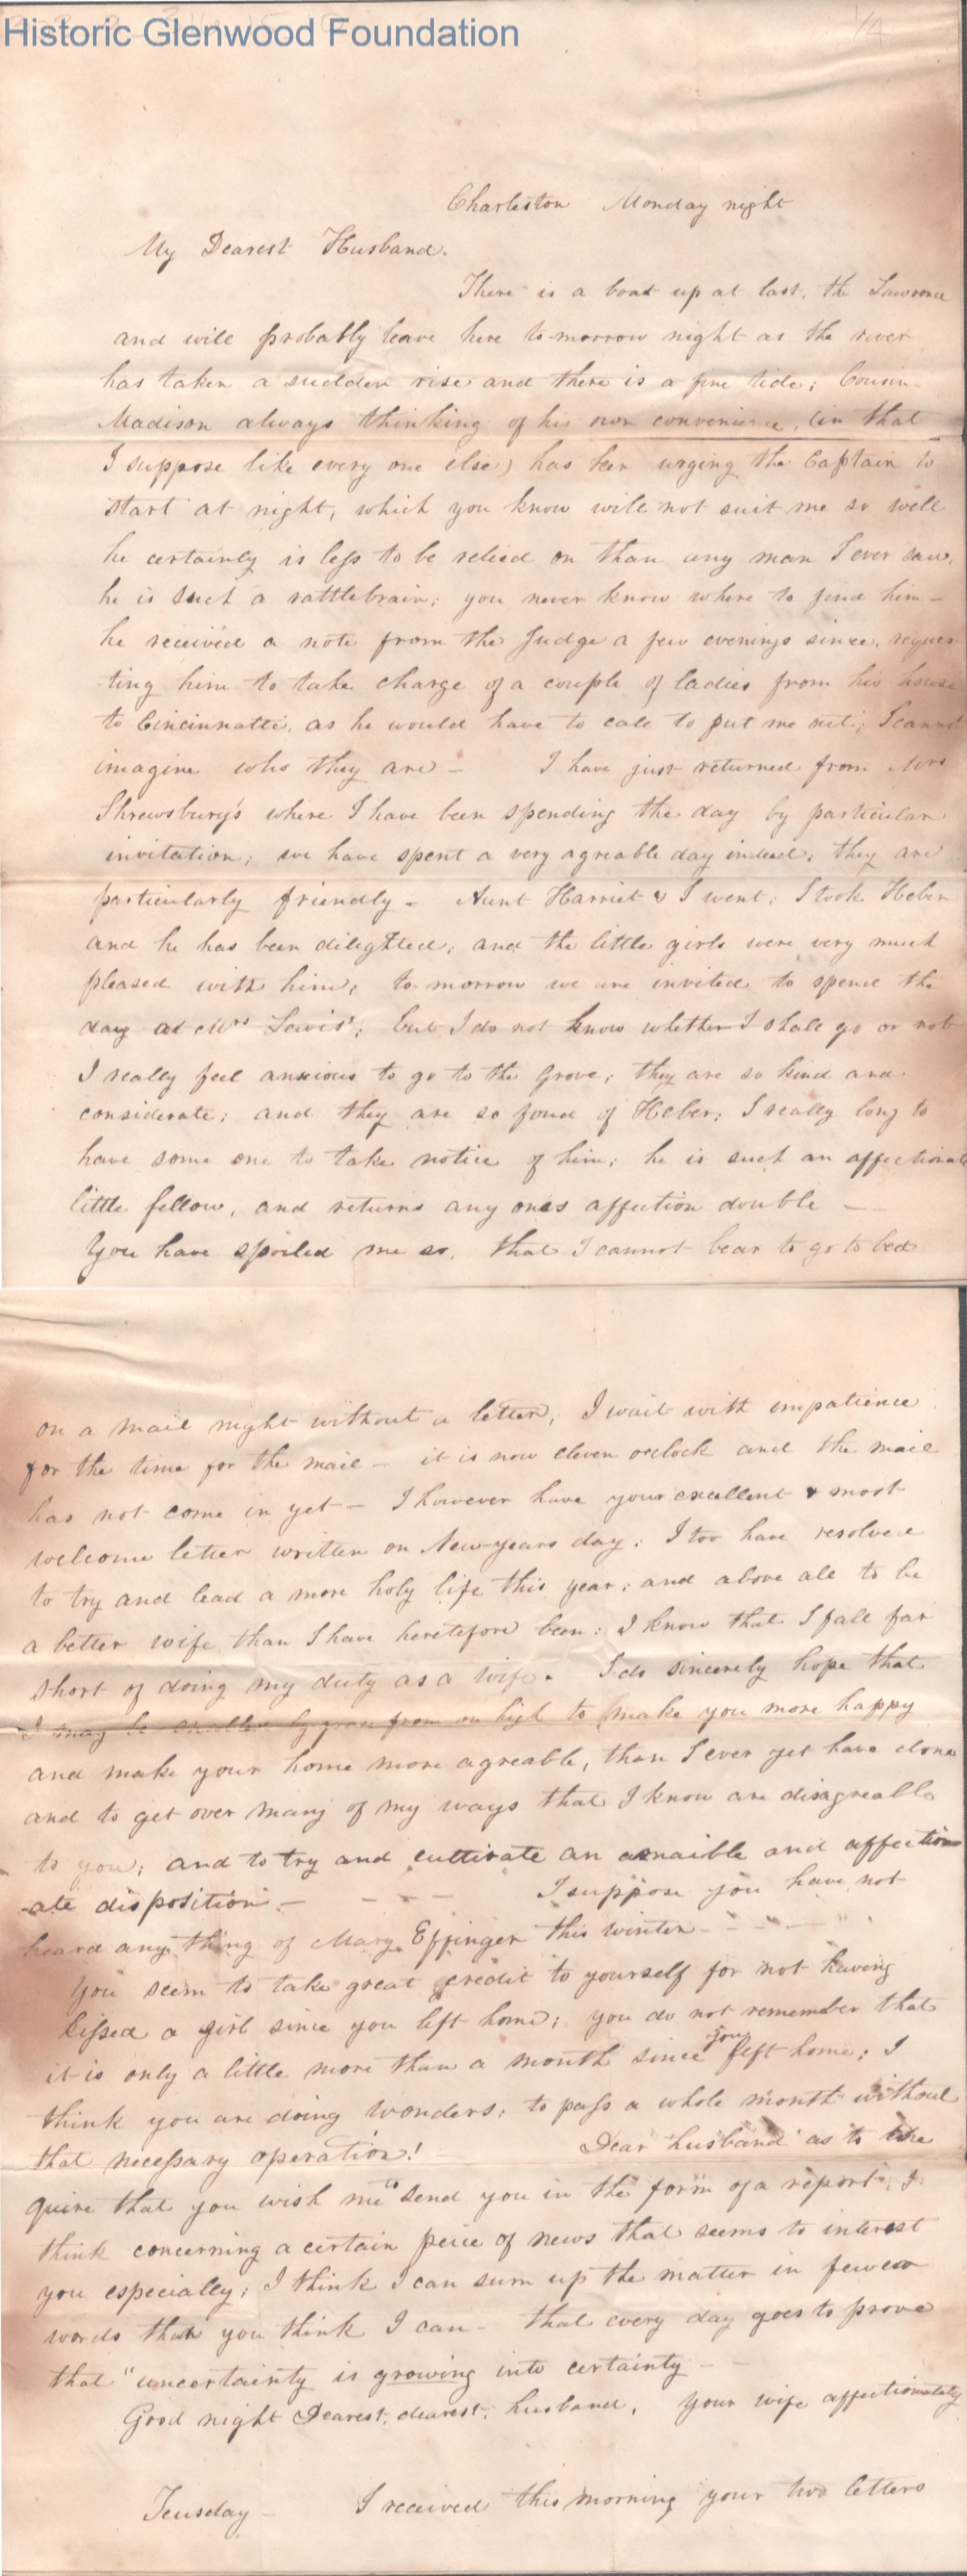 Historic Glenwood Foundation
1/4
Charleston Monday night
My Dearest Husband.
There is a boat up at last, the Lawrence
and will probably leave here to-morrow night as the river
has taken a sudden rise and there is a fine tide; Cousin
Madison always thinking of his own convenience, (in that
I suppose like every one else) has been urging the Captain to
start at night, which you know will not suit me so well
he certainly is less to be relied on than any man I ever saw,
he is such a rattlebrain; you never know where to find him -
he received a note from the Judge a few evenings since, reques
ting him to take charge of a couple of ladies from his house
to Cincinnatti, as he would have to call to put me out; I cannot
imagine who they are - I have just returned from Mrs
Shrewsbury's where I have been spending the day by particular
invitation; we have spent a very agreable day indeed, they are
particularly friendly - Aunt Harriet & I went; I took Heber
and he has been dilighted; and the little girls were very much
pleased with him; to-morrow we are invited to spend the
day at Mrs Lewis'; but I do not know whether I shall go or not
I really feel anxious to go to the Grove; they are so kind and
considerate; and they are so fond of Heber; I really long to
have some one to take notice of him; he is such an affectionate
little fellow, and returns any ones affection double -
You have spoiled me so, that I cannot bear to go to bed
on a mail night without a letter; I wait with impatience
for the time for the mail - it is now eleven oclock and the mail
has not come in yet - I however have your excellent & most
welcome letter written on New-years day; I too have resolved
to try and lead a more holy life this year; and above all to be
a better wife than I have heretofore been; I know that I fall far
short of doing my duty as a wife. I do sincerely hope that
I may be enabled by grace from on high to make you more happy
and make your home more agreable, than I ever yet have done
and to get over many of my ways that I know are disagreable
to you; and to try and cultivate an amaible and affection
-ate disposition - - - - I suppose you have not
heard any thing of Mary Effinger this winter - - - -
You seem to take great credit to yourself for not having
kissed a girl since you left home; you do not remember that
it is only a little more than a month since you left home; I
think you are doing wonders; to pass a whole month without
that necessary operation! Dear husband as to the
quire that you wish me to send you in the form of a report; I
think concerning a certain peice of news that seems to interest
you especially; I think I can sum up the matter in fewer
words than you think I can - that every day goes to prove
that "uncertainty is growing into certainty - -
Good night Dearest, dearest, husband, Your wife affectionately
Teusday - I received this morning your two letters